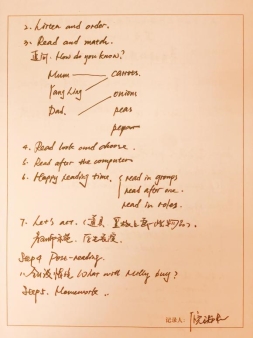 2. Listen and order.
3. Read and match.
追问. How do you know?
Mum carrots.
Yang Ling onions
Dad. peas
pepper
4. Read look and choose.
5. Read after the computer
6. Happy reading time. { read in groups
read after one.
read in roles.
7. Let's act. (道具
Step 4 Post-reading.
What will buy?
Step 5. Homework ..
记录人: